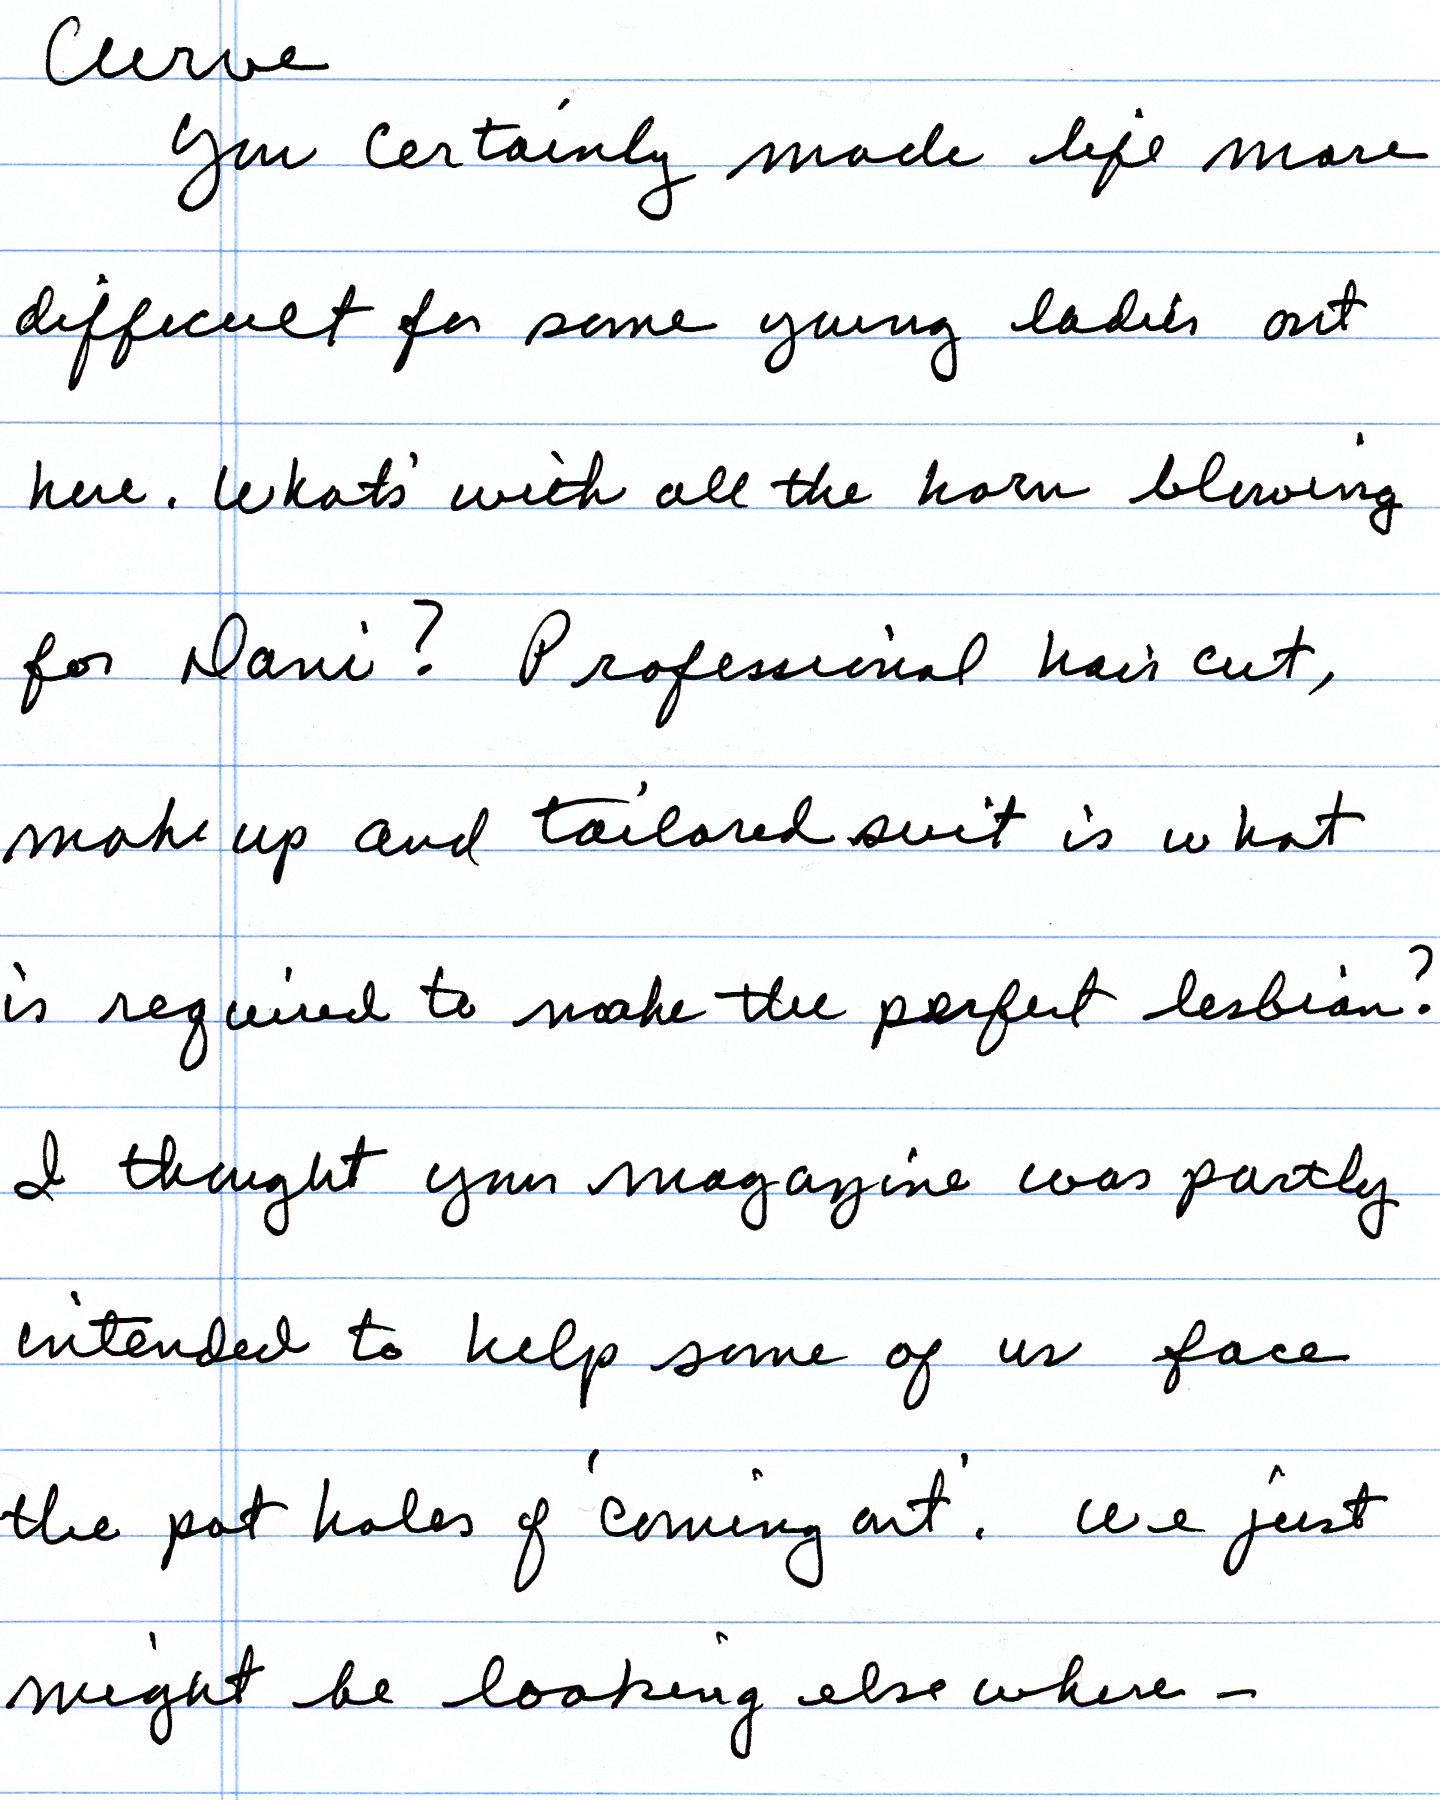 Curve
You certainly made life more
difficult for some young ladies out
here. What's with all the horn blowing
for Dani? Professional hair cut,
make up and tailored suit is what
is required to make the perfect lesbian?
I thought your magazine was partly
intended to help some of us face
the pot holes of 'coming out'. We just
might be looking elsewhere –